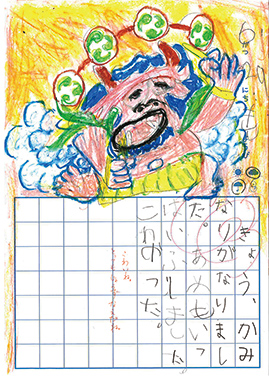 がつ
にち
きょう、かみ
なりがなりまし
た。あめもいっ
ぱいふりました
こわかった。